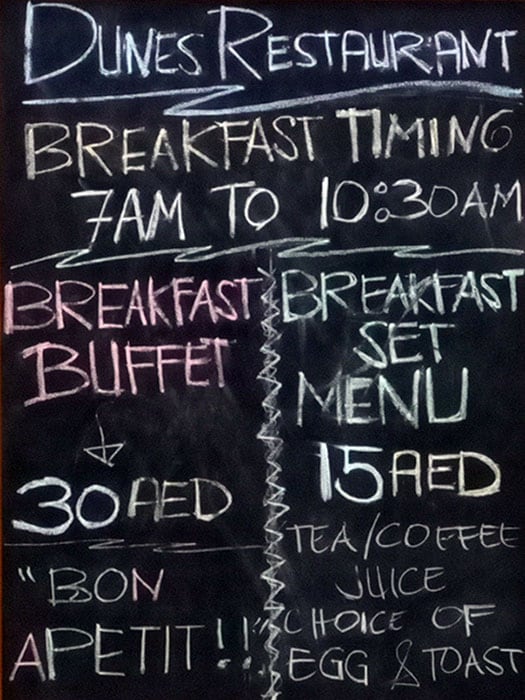 DUNES RESTAURANT
BREAKFAST TIMING
7AM TO 10:30AM
BREAKFAST
BUFFET
30 AED
"BON
APETIT!!"
BREAKFAST
SET
MENU
15 AED
TEA/COFFEE
JUICE
CHOICE OF
EGG & TOAST